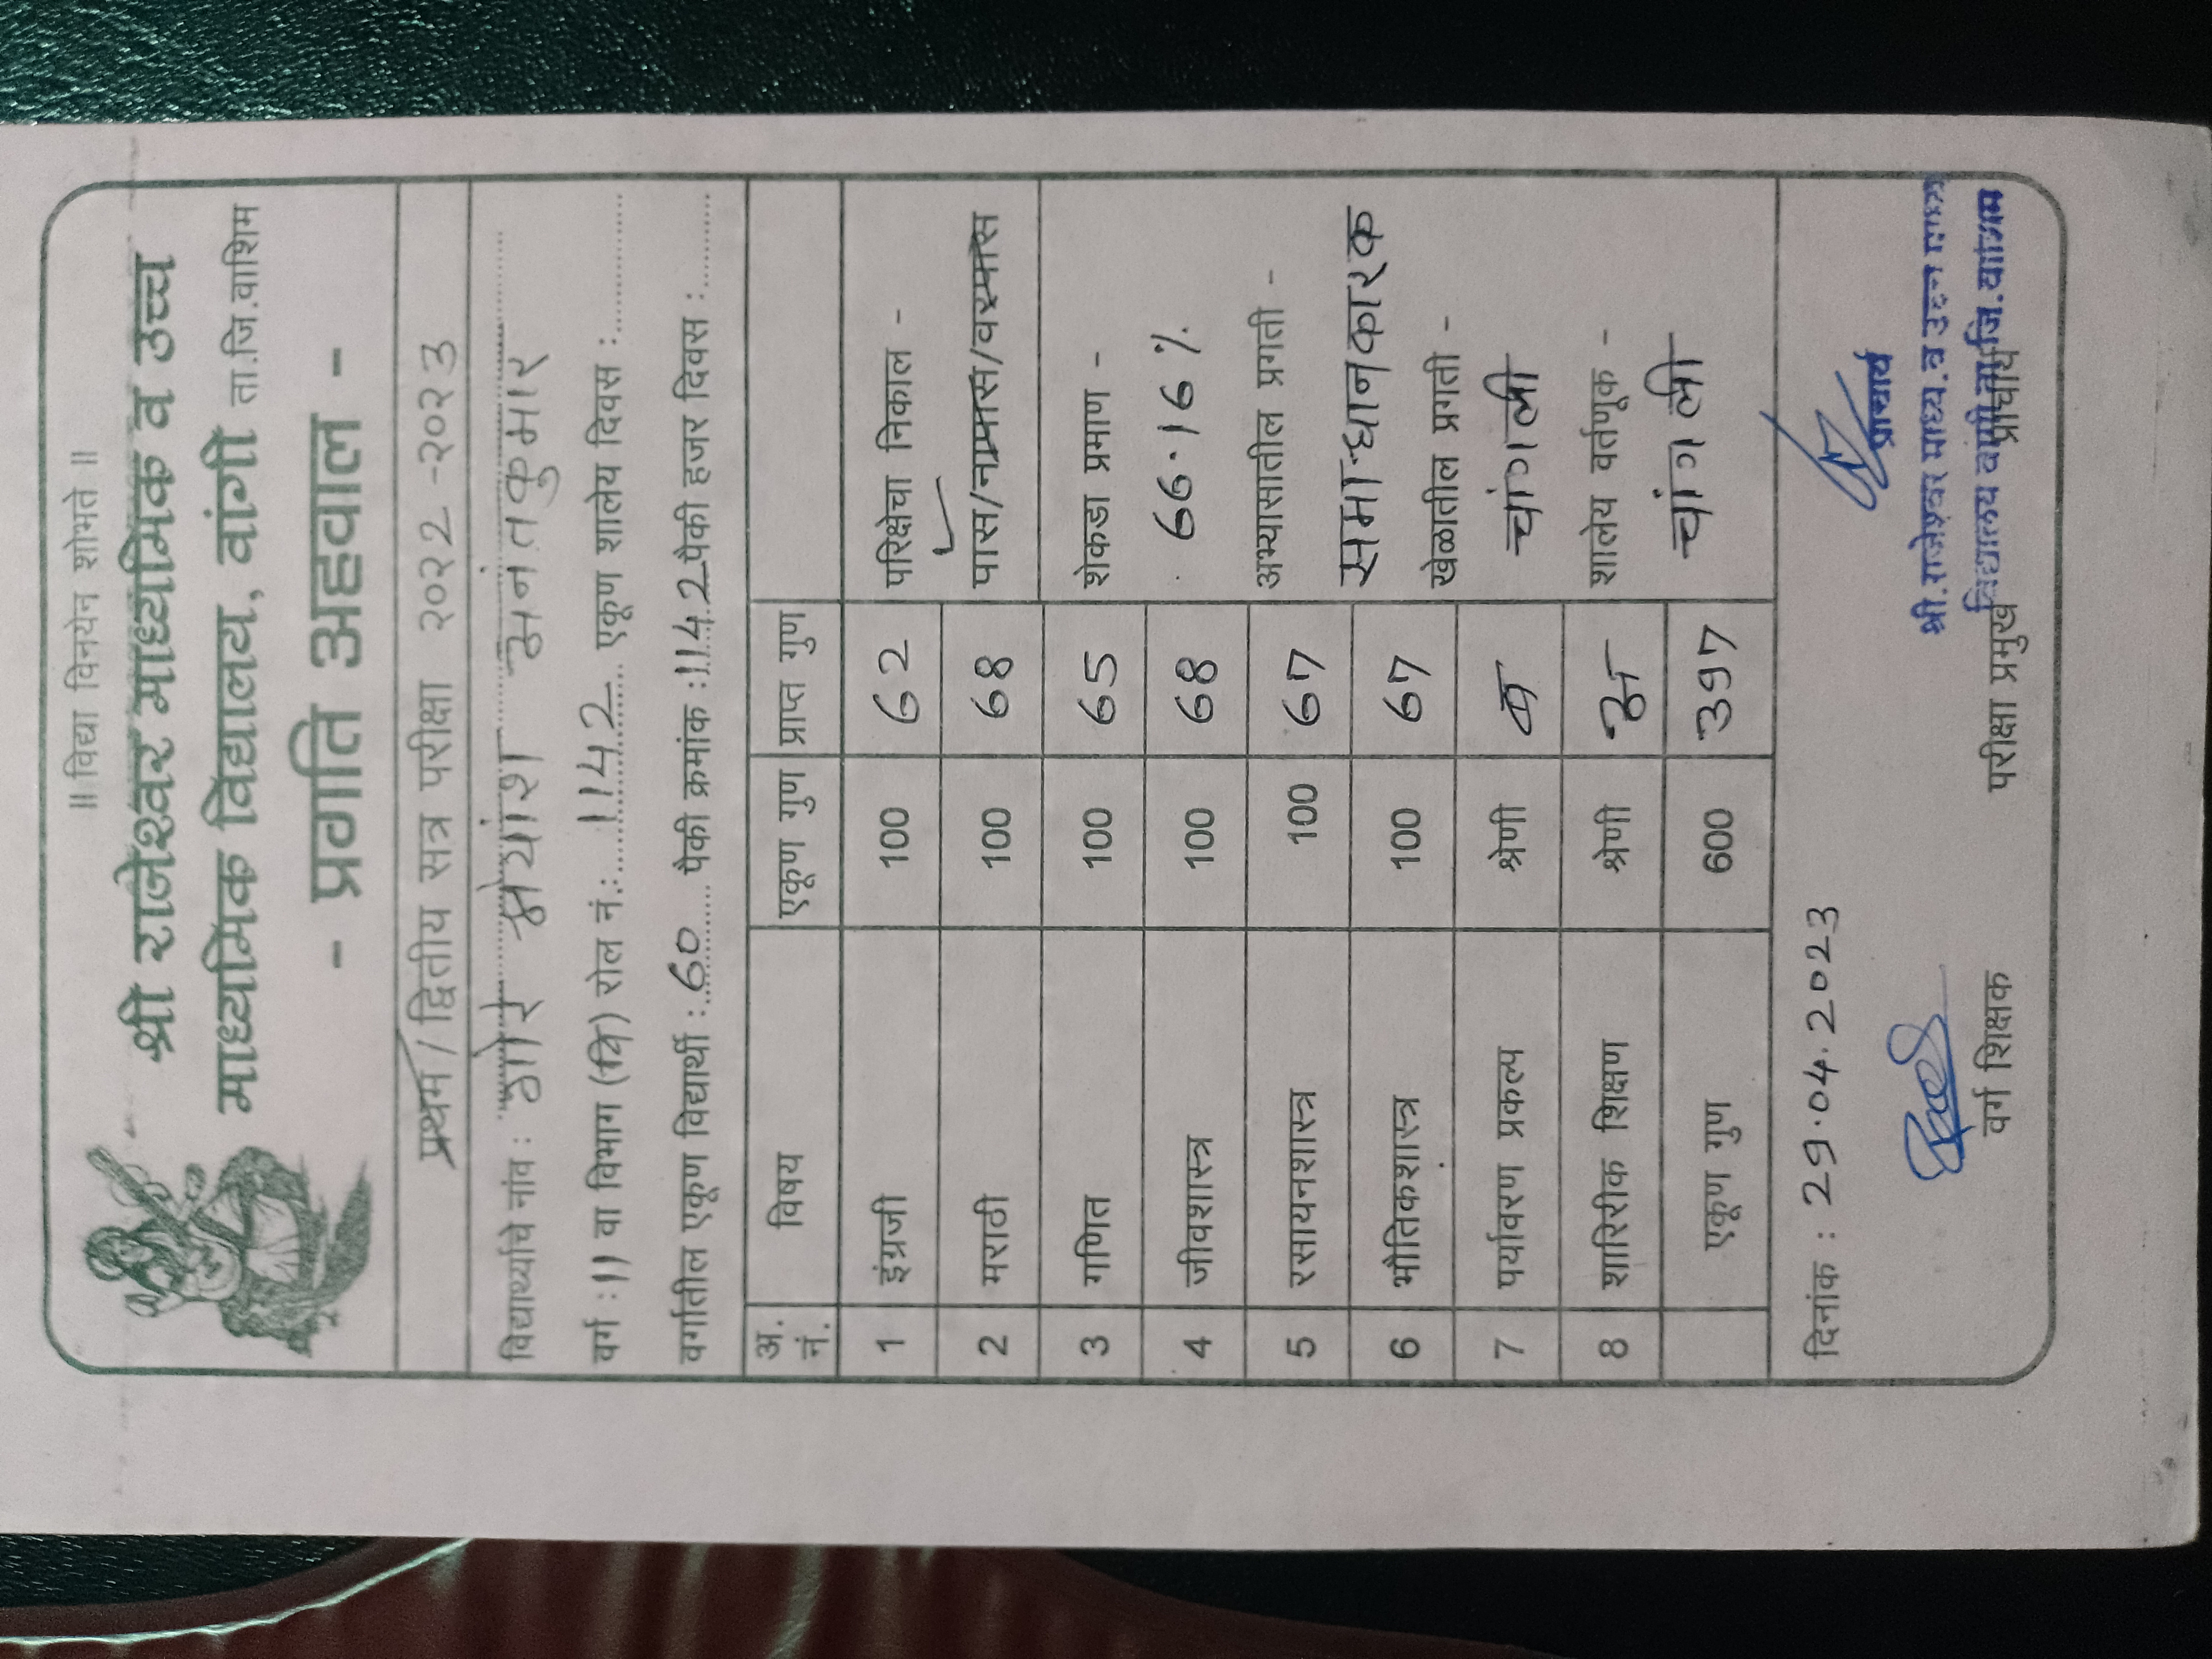 ॥ विद्या विनयेन शोभते ॥
श्री राजेश्वर माध्यमिक व उच्च
माध्यमिक विद्यालय, वांगी ता.जि.वाशिम
- प्रगति अहवाल -
प्रथम / द्वितीय सत्र परीक्षा २०२2 -२०२3
विद्यार्थ्याचे नांव : ठोरे श्रेयांश अनंतकुमार
वर्ग : 11 वा विभाग (वि) रोल नं.: 1142 एकूण शालेय दिवस :
वर्गातील एकूण विद्यार्थी : 60 पैकी क्रमांक : 1142 पैकी हजर दिवस :
अ. नं. विषय एकूण गुण प्राप्त गुण
1 इंग्रजी 100 62 परिक्षेचा निकाल -
2 मराठी 100 68 पास/नापास/वरपास
3 गणित 100 65 शेकडा प्रमाण -
4 जीवशास्त्र 100 68 66.16 %
5 रसायनशास्त्र 100 67 अभ्यासातील प्रगती -
समाधानकारक
6 भौतिकशास्त्र 100 67 खेळातील प्रगती -
7 पर्यावरण प्रकल्प श्रेणी चांगली
8 शारिरीक शिक्षण श्रेणी अ शालेय वर्तणुक -
एकूण गुण 600 397 चांगली
दिनांक : 29.04.2023
प्राचार्य
श्री. राजेश्वर माध्य. व उच्च माध्य
विद्यालय वांगी ता.जि. वाशिम
वर्ग शिक्षक परीक्षा प्रमुख प्राचार्य